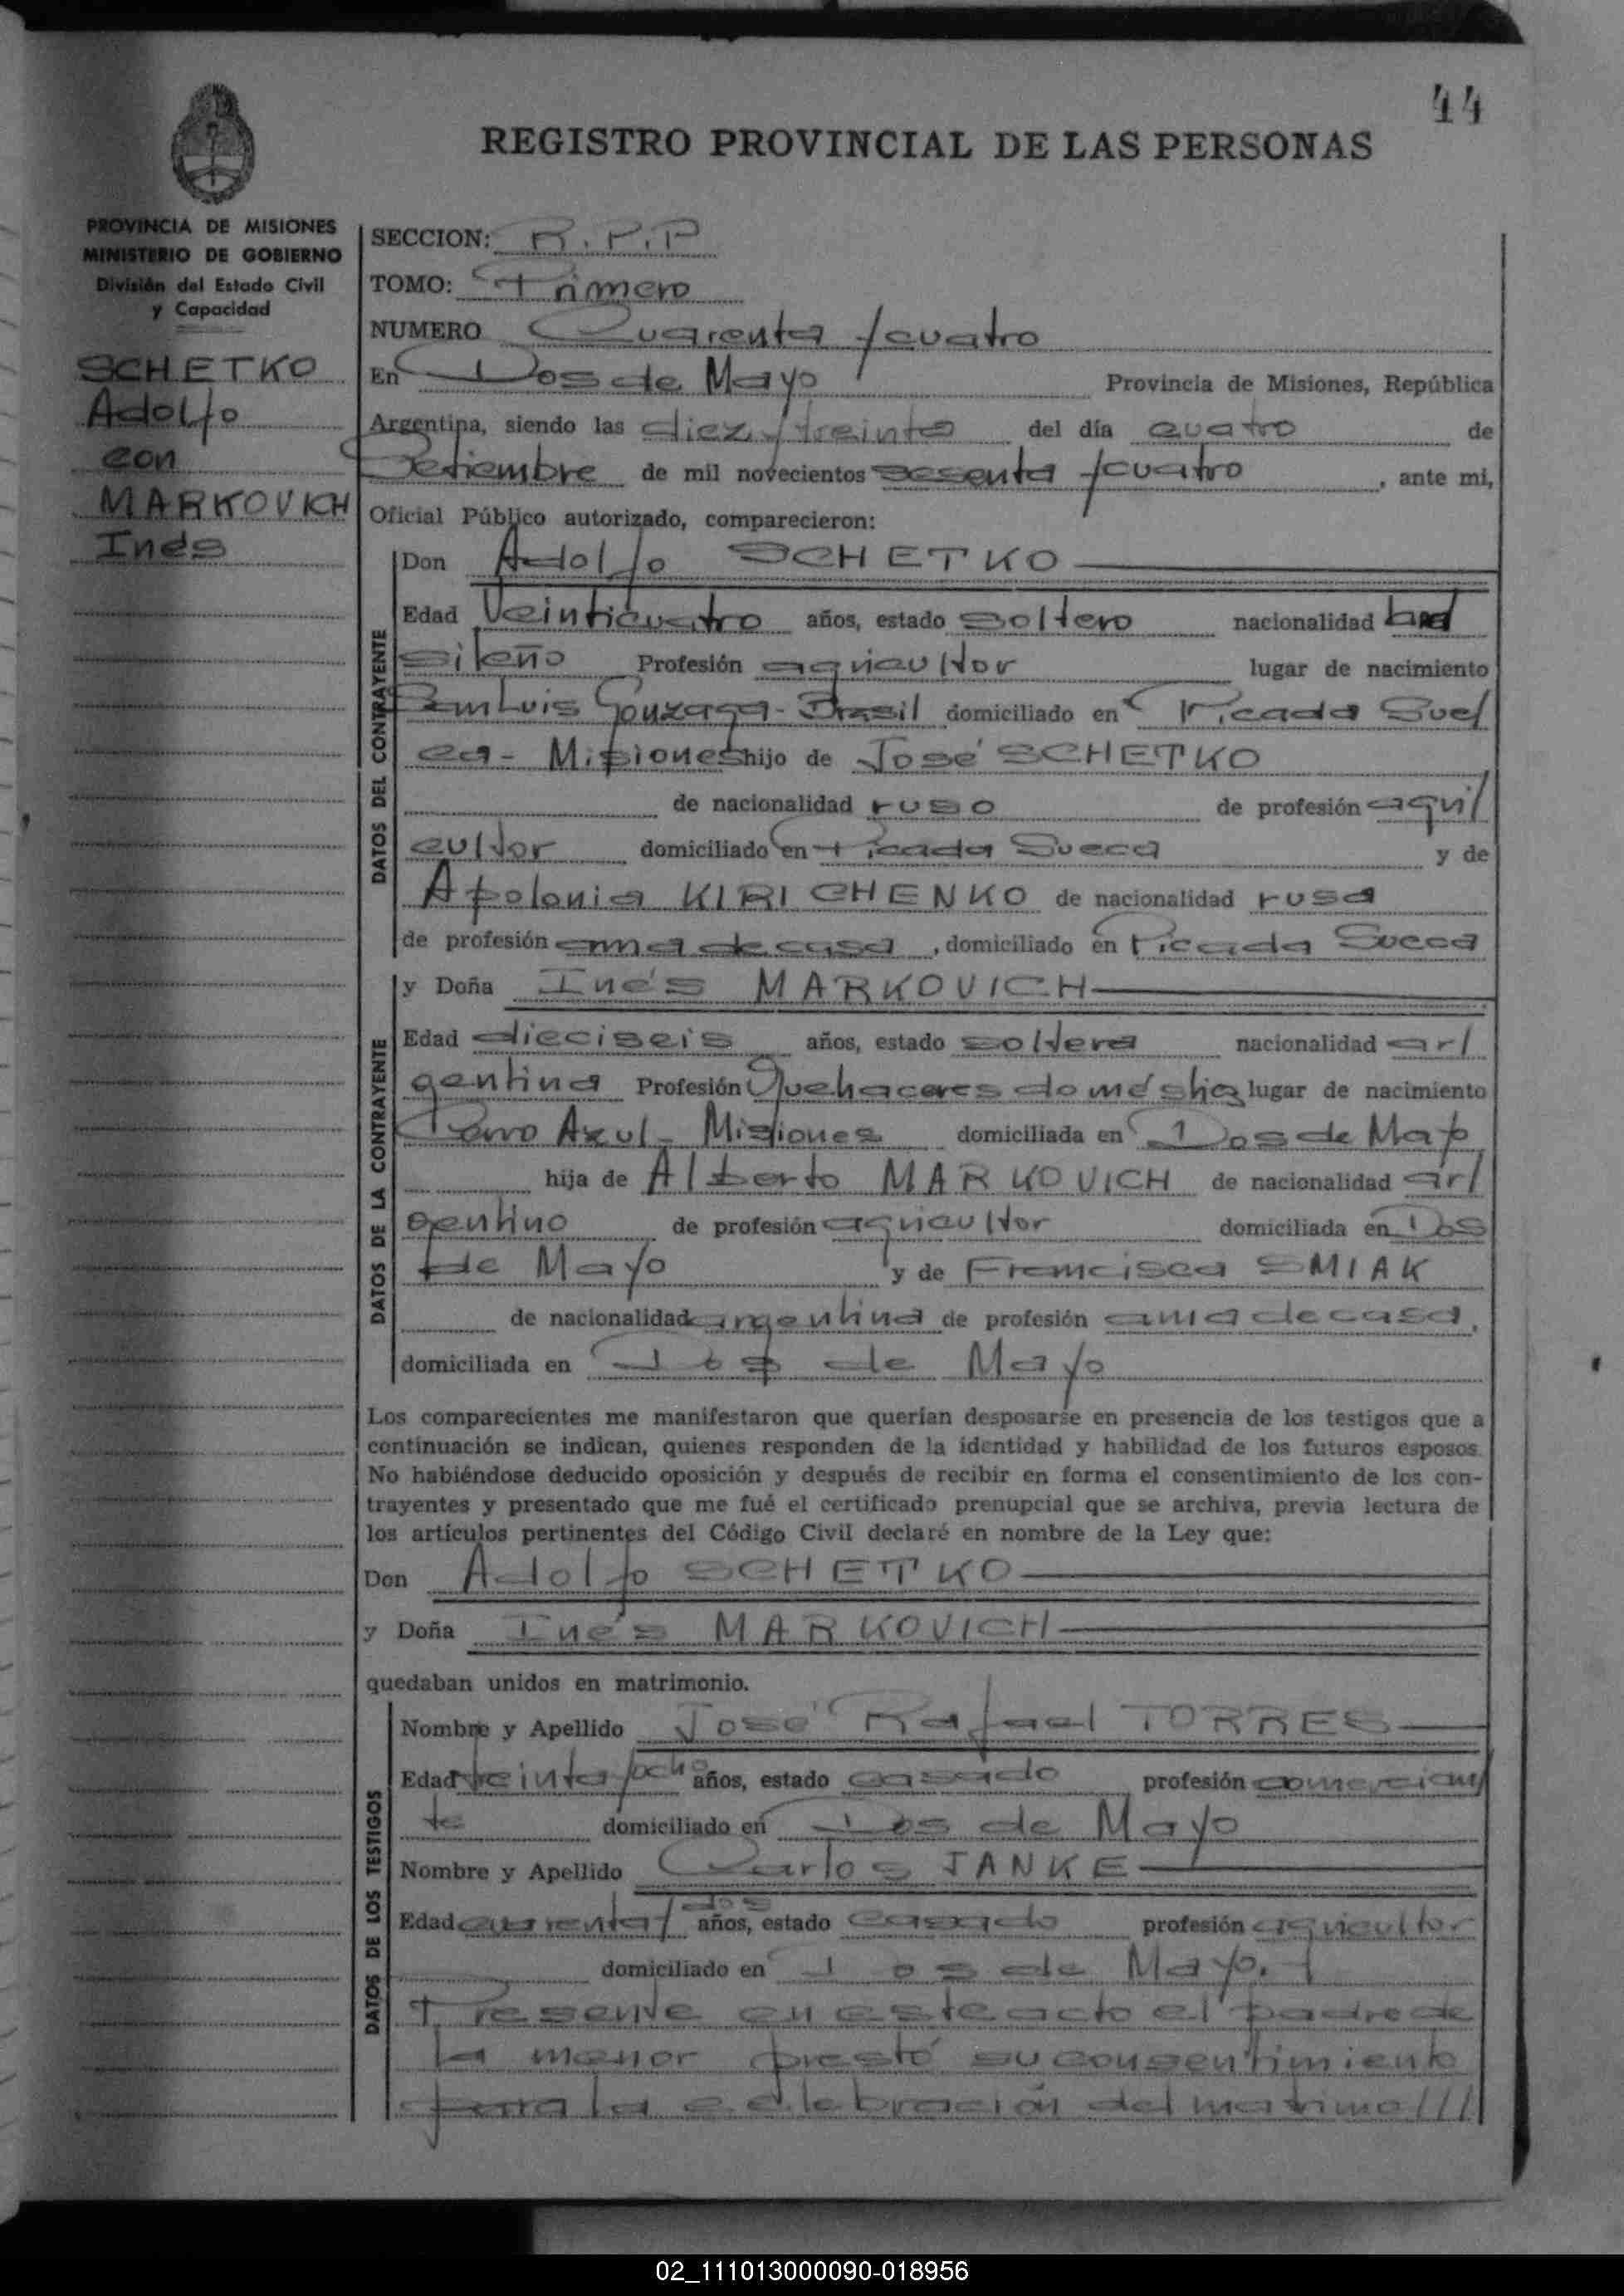 44
REGISTRO PROVINCIAL DE LAS PERSONAS
PROVINCIA DE MISIONES
MINISTERIO DE GOBIERNO
División del Estado Civil
y Capacidad
SCHETKO
Adolfo
con
MARKOVICH
Inés
SECCION: R.P.P
TOMO: Primero
NUMERO Cuarenta y cuatro
En Dos de Mayo Provincia de Misiones, República
Argentina, siendo las diez y treinta del día cuatro de
Setiembre de mil novecientos sesenta y cuatro, ante mi,
Oficial Público autorizado, comparecieron:
DATOS DEL CONTRAYENTE
Don Adolfo SCHETKO
Edad Veinticuatro años, estado soltero nacionalidad bra/
sileño Profesión agricultor lugar de nacimiento
San Luis Gonzaga - Brasil domiciliado en Picada Sue/
ca - Misiones hijo de José SCHETKO
de nacionalidad ruso de profesión agri/
cultor domiciliado en Picada Sueca y de
Apolonia KIRICHENKO de nacionalidad rusa
de profesión ama de casa, domiciliado en Picada Sueca
DATOS DE LA CONTRAYENTE
y Doña Inés MARKOVICH
Edad dieciseis años, estado soltera nacionalidad ar/
gentina Profesión Quehaceres domésticos lugar de nacimiento
Cerro Azul - Misiones domiciliada en Dos de Mayo
hija de Alberto MARKOVICH de nacionalidad ar/
gentino de profesión agricultor domiciliada en Dos
de Mayo y de Francisca SMIAK
de nacionalidad argentina de profesión ama de casa,
domiciliada en Dos de Mayo
Los comparecientes me manifestaron que querían desposarse en presencia de los testigos que a
continuación se indican, quienes responden de la identidad y habilidad de los futuros esposos.
No habiéndose deducido oposición y después de recibir en forma el consentimiento de los con-
trayentes y presentado que me fué el certificado prenupcial que se archiva, previa lectura de
los artículos pertinentes del Código Civil declaré en nombre de la Ley que:
Don Adolfo SCHETKO
y Doña Inés MARKOVICH
quedaban unidos en matrimonio.
DATOS DE LOS TESTIGOS
Nombre y Apellido José Rafael TORRES
Edad treinta y ocho años, estado casado profesión comercian/
te domiciliado en Dos de Mayo
Nombre y Apellido Carlos JANKE
Edad cuarenta y dos años, estado casado profesión agricultor
domiciliado en Dos de Mayo.
Presente en este acto el padre de
la menor prestó su consentimiento
para la celebración del matrimo///
02_111013000090-018956